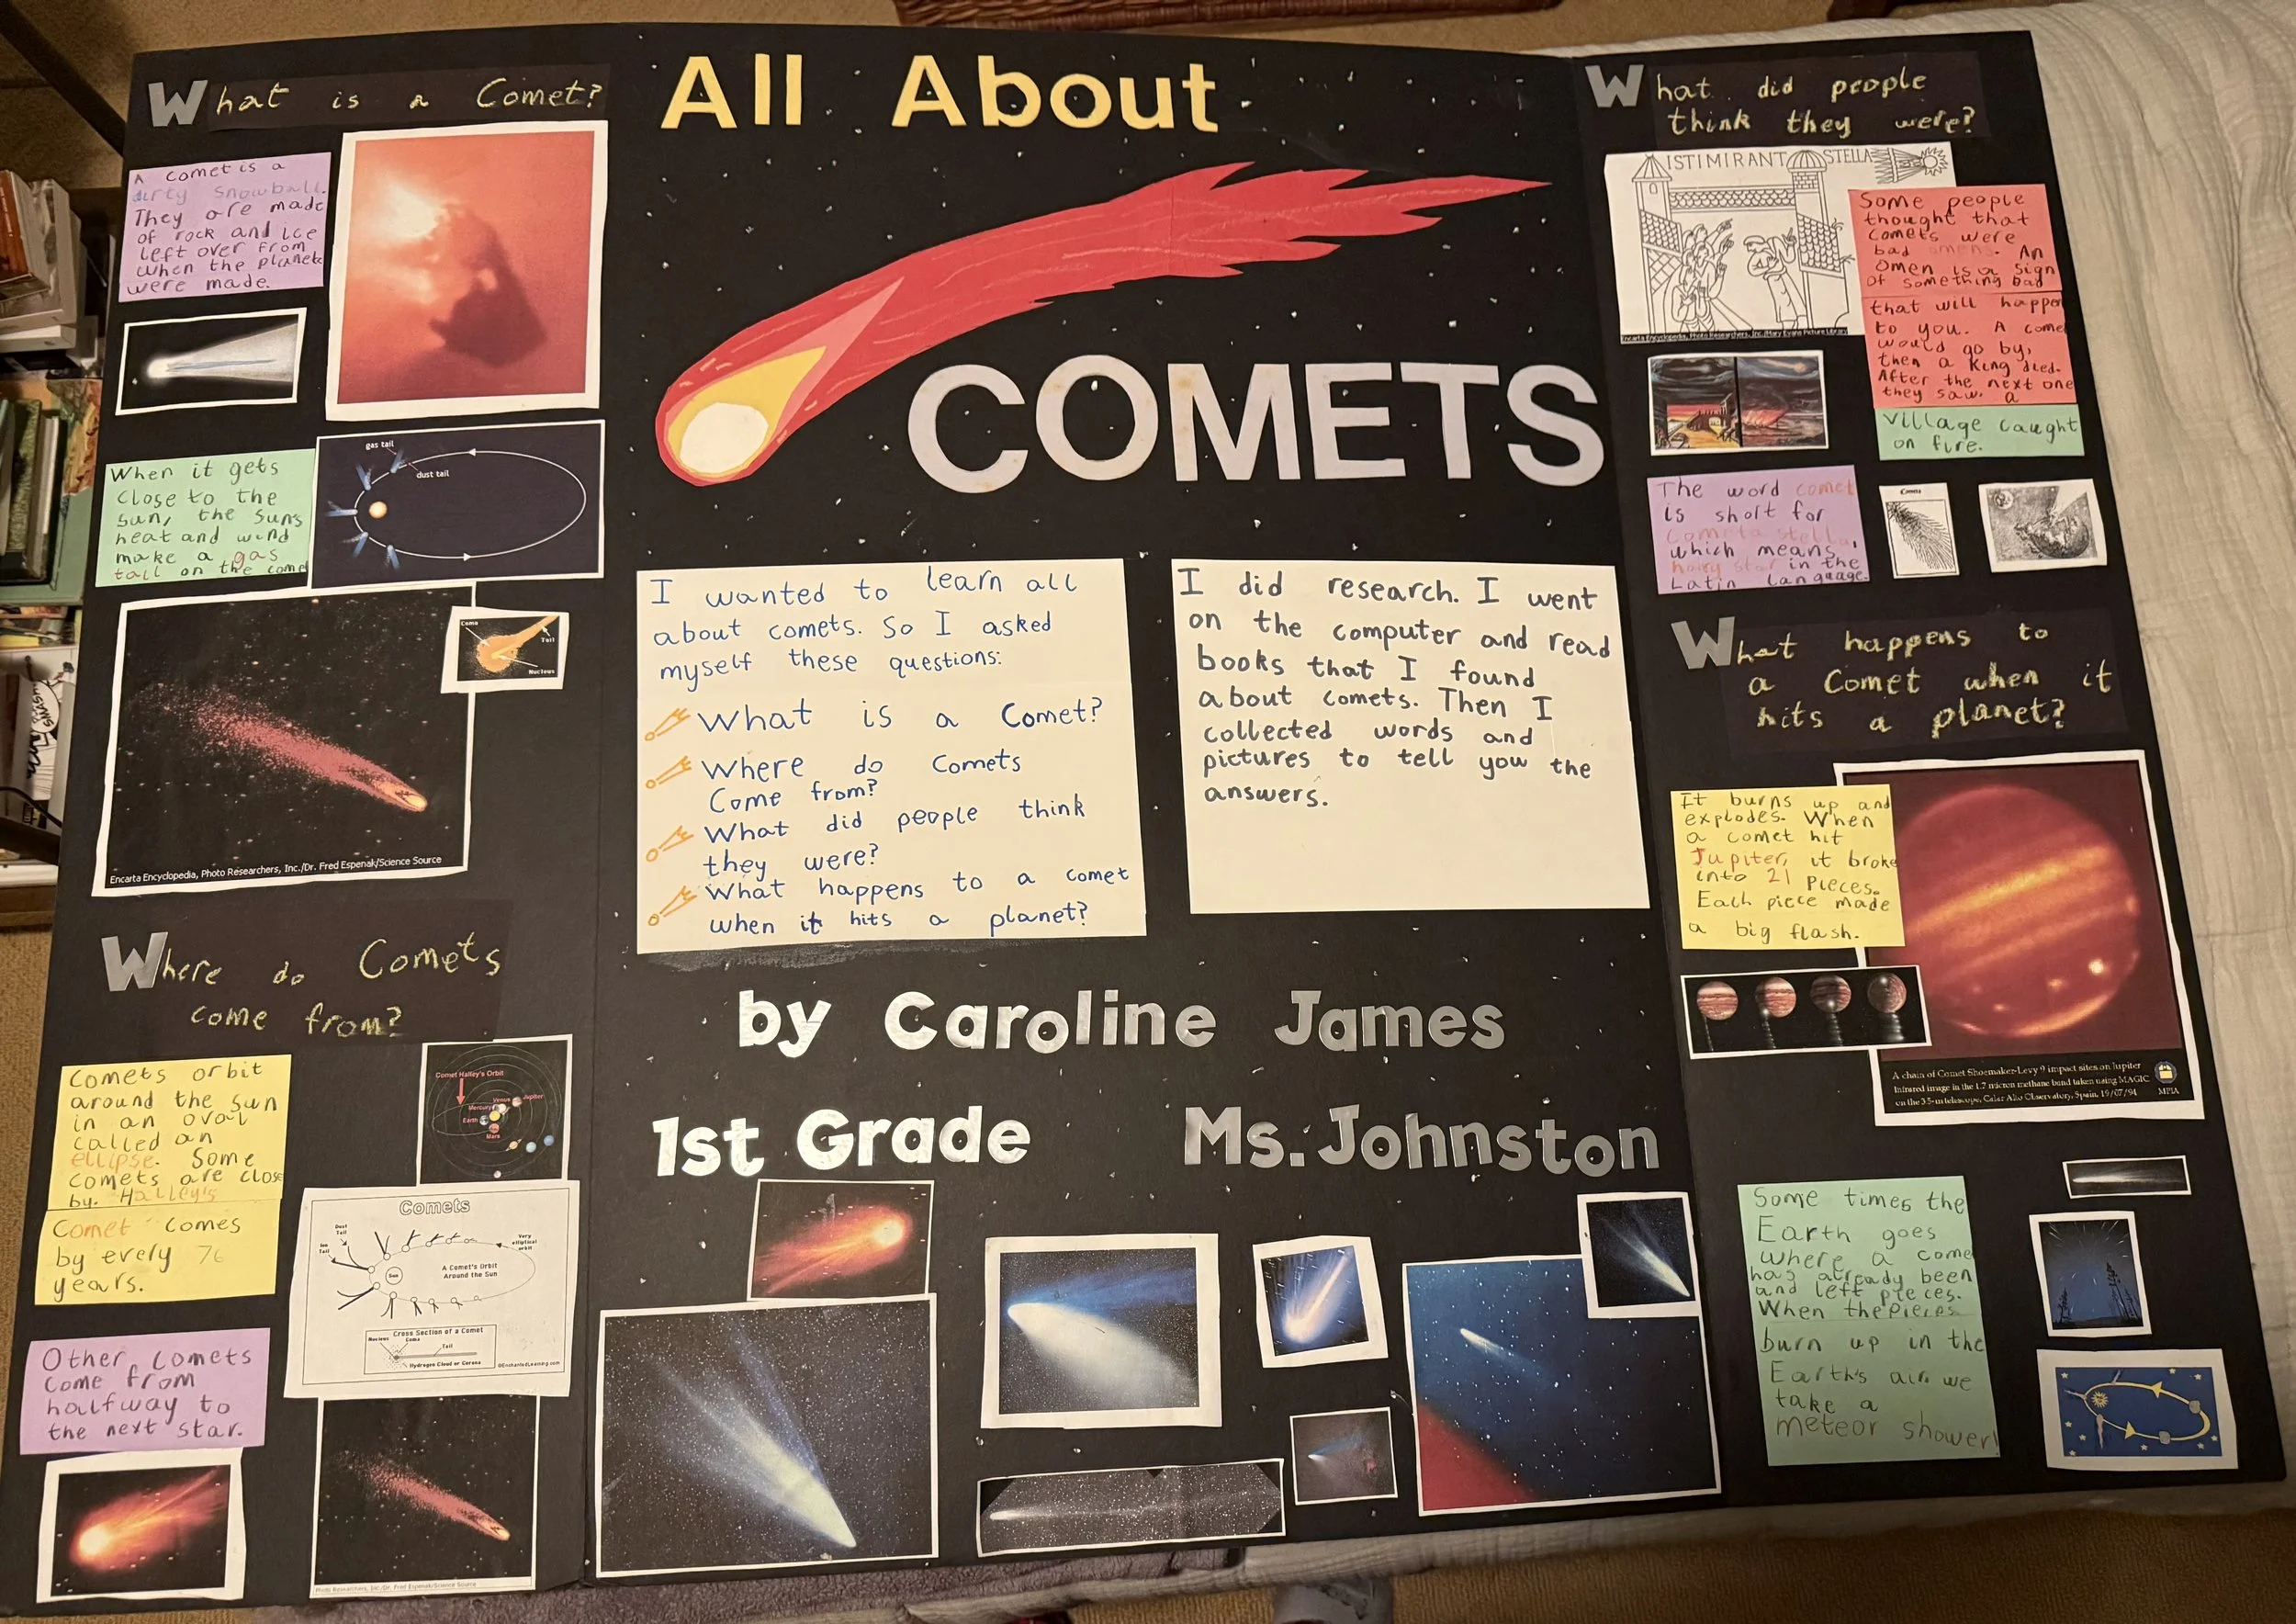 What is a Comet?
A comet is a
dirty snowball.
They are made
of rock and ice
left over from
when the planets
were made.
When it gets
close to the
sun, the suns
heat and wind
make a gas
tail on the comet
gas tail
dust tail
Coma
Tail
Nucleus
Encarta Encyclopedia, Photo Researchers, Inc./Dr. Fred Espenak/Science Source
Where do Comets
come from?
Comets orbit
around the sun
in an oval
called an
ellipse. Some
comets are close
by. Halley's
Comet comes
by every 76
years.
Comet Halley's Orbit
Venus
Jupiter
Mercury
Earth
Mars
Comets
Dust
Tail
Ion
Tail
Very
elliptical
orbit
Sun
A Comet's Orbit
Around the Sun
Cross Section of a Comet
Nucleus
Coma
Tail
Hydrogen Cloud or Corona
©EnchantedLearning.com
Other comets
come from
halfway to
the next star.
Photo Researchers, Inc./Dr. Fred Espenak/Science Source
All About
COMETS
I wanted to learn all
about comets. So I asked
myself these questions:
What is a Comet?
Where do Comets
Come from?
What did people think
they were?
What happens to a comet
when it hits a planet?
I did research. I went
on the computer and read
books that I found
about comets. Then I
collected words and
pictures to tell you the
answers.
by Caroline James
1st Grade Ms. Johnston
What did people
think they were?
ISTIMIRANT STELLA
Encarta Encyclopedia, Photo Researchers, Inc./Mary Evans Picture Library
Some people
thought that
comets were
bad omens. An
omen is a sign
of something bad
that will happen
to you. A come
would go by,
then a King died.
After the next one
they saw. a
village caught
on fire.
The word comet
is short for
Cometa stella,
which means,
hairy star in the
Latin language.
Comets
What happens to
a Comet when it
hits a planet?
It burns up and
explodes. When
a comet hit
Jupiter, it broke
into 21 pieces.
Each piece made
a big flash.
A chain of Comet Shoemaker-Levy 9 impact sites on Jupiter
Infrared image in the 1.7 micron methane band taken using MAGIC
on the 3.5-m telescope, Calar Alto Observatory, Spain, 19/07/94
MPIA
Some times the
Earth goes
where a come
has already been
and left pieces.
When the pieces
burn up in the
Earth's air, we
take a
meteor shower!